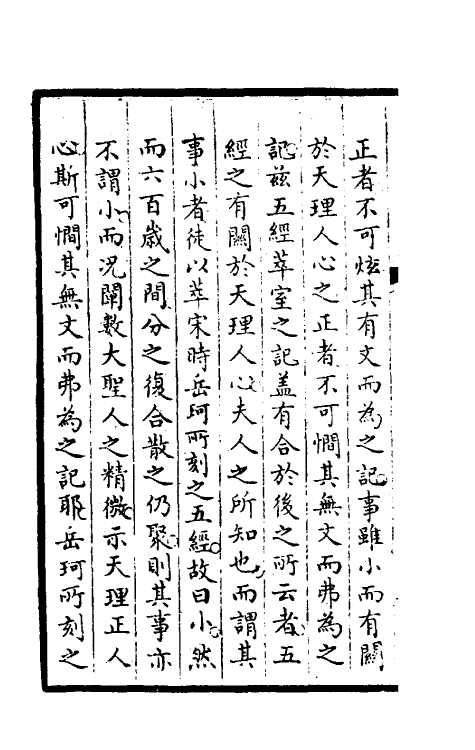 正者不可炫其有文而為之記事雖小而有關
於天理人心之正者不可憪其無文而弗為之
記兹五經萃室之記盖有合於後之所云者五
經之有關於天理人心夫人之所知也而謂其
事小者徒以萃宋時岳珂所刻之五經故曰小然
而六百歲之間分之復合散之仍聚則其事亦
不謂小而况闡數大聖人之精微示天理正人
心斯可憪其無文而弗為之記耶岳珂所刻之